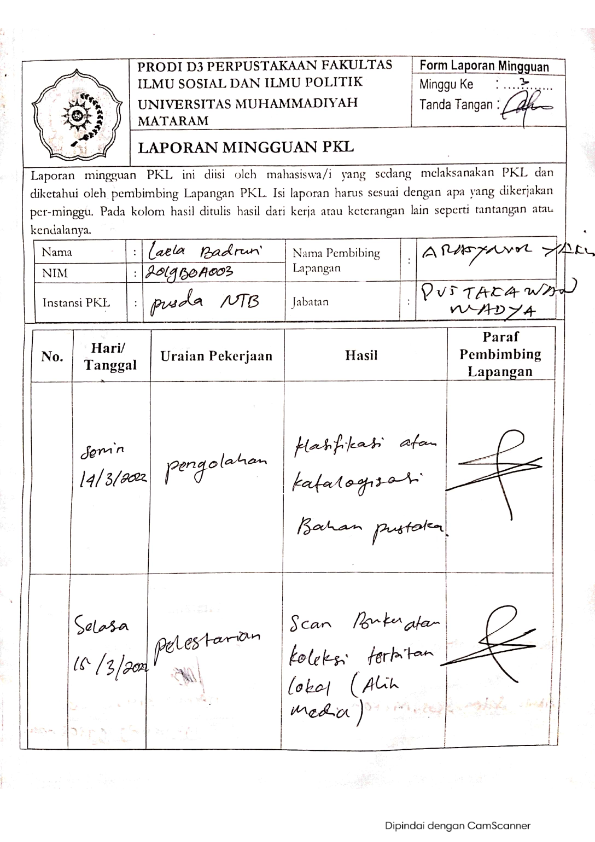 PRODI D3 PERPUSTAKAAN FAKULTAS
ILMU SOSIAL DAN ILMU POLITIK
UNIVERSITAS MUHAMMADIYAH
MATARAM
LAPORAN MINGGUAN PKL
Form Laporan Mingguan
Minggu Ke : ....2......
Tanda Tangan :
Laporan mingguan PKL ini diisi oleh mahasiswa/i yang sedang melaksanakan PKL dan
diketahui oleh pembimbing Lapangan PKL. Isi laporan harus sesuai dengan apa yang dikerjakan
per-minggu. Pada kolom hasil ditulis hasil dari kerja atau keterangan lain seperti tantangan atau
kendalanya.
Nama : Laela Badruri
NIM : 2019B0A003
Instansi PKL : pusda NTB
Nama Pembibing
Lapangan :
Jabatan : PUSTAKAWAN
MADYA
No.
Hari/
Tanggal
Uraian Pekerjaan
Hasil
Paraf
Pembimbing
Lapangan
Senin
14/3/2022
pengolahan
klasifikasi atau
katalogisasi
Bahan pustaka.
Selasa
15/3/2022
pelestarian
Scan Buku atau
koleksi terbitan
lokal (Alih
media)
Dipindai dengan CamScanner